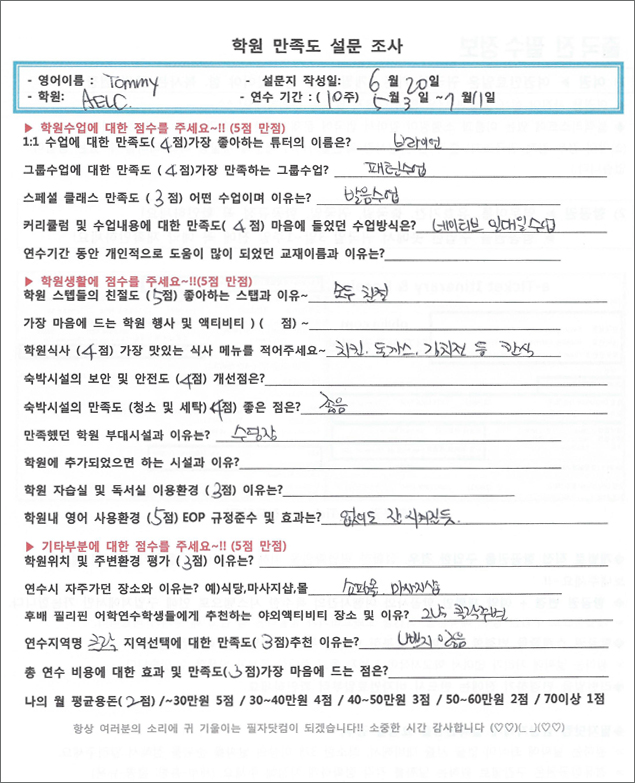 학원 만족도 설문 조사
- 영어이름 : Tommy - 설문지 작성일: 6월 20일
- 학원: AELC. - 연수 기간 : (10주) 5월 3일 ~7월 11일
▶ 학원수업에 대한 점수를 주세요~!! (5점 만점)
1:1 수업에 대한 만족도(4점)가장 좋아하는 튜터의 이름은? 브라이언
그룹수업에 대한 만족도 (4점)가장 만족하는 그룹수업? 패턴수업
스페셜 클래스 만족도 (3점) 어떤 수업이며 이유는? 발음수업
커리큘럼 및 수업내용에 대한 만족도( 4점) 마음에 들었던 수업방식은? 네이티브 일대일수업
연수기간 동안 개인적으로 도움이 많이 되었던 교재이름과 이유는?
▶ 학원생활에 점수를 주세요~!!(5점 만점)
학원 스텝들의 친절도 (5점) 좋아하는 스탭과 이유~ 모두 친절
가장 마음에 드는 학원 행사 및 액티비티 ) ( 점) ~
학원식사 (4점) 가장 맛있는 식사 메뉴를 적어주세요~ 치킨. 돈가스. 김치전 등 한식
숙박시설의 보안 및 안전도 (4점) 개선점은?
숙박시설의 만족도 (청소 및 세탁) 4점) 좋은 점은? 좋음
만족했던 학원 부대시설과 이유는? 수영장
학원에 추가되었으면 하는 시설과 이유?
학원 자습실 및 독서실 이용환경 (3점) 이유는?
학원내 영어 사용환경 (5점) EOP 규정준수 및 효과는? 없이도 잘 지켜진듯.
▶ 기타부분에 대한 점수를 주세요~!! (5점 만점)
학원위치 및 주변환경 평가 (3점) 이유는?
연수시 자주가던 장소와 이유는? 예)식당,마사지샵,몰 쇼핑몰. 마사지샵
후배 필리핀 어학연수학생들에게 추천하는 야외액티비티 장소 및 이유? 클락주변
연수지역명 클락 지역선택에 대한 만족도( 3점)추천 이유는? 나쁘지 않음
총 연수 비용에 대한 효과 및 만족도(3점)가장 마음에 드는 점은?
나의 월 평균용돈(2점) /~30만원 5점 / 30~40만원 4점 / 40~50만원 3점 / 50~60만원 2점 / 70이상 1점
항상 여러분의 소리에 귀 기울이는 필자닷컴이 되겠습니다!! 소중한 시간 감사합니다 (♡♡)(_ _)(♡♡)